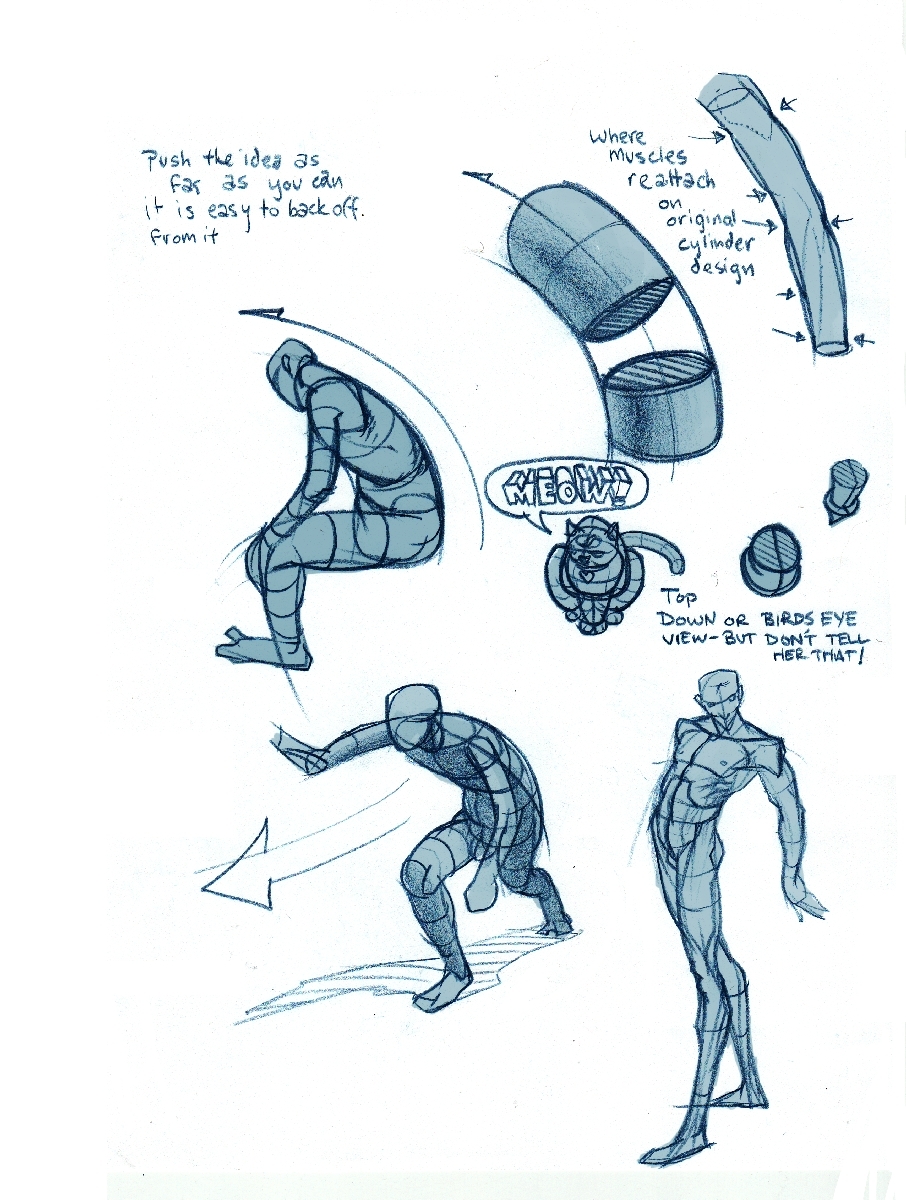 Push the idea as
far as you can
it is easy to back off.
from it
where
muscles
reattach
on
original
cylinder
design
MEOW!
Top
DOWN OR BIRDS EYE
VIEW-BUT DON'T TELL
HER THAT!